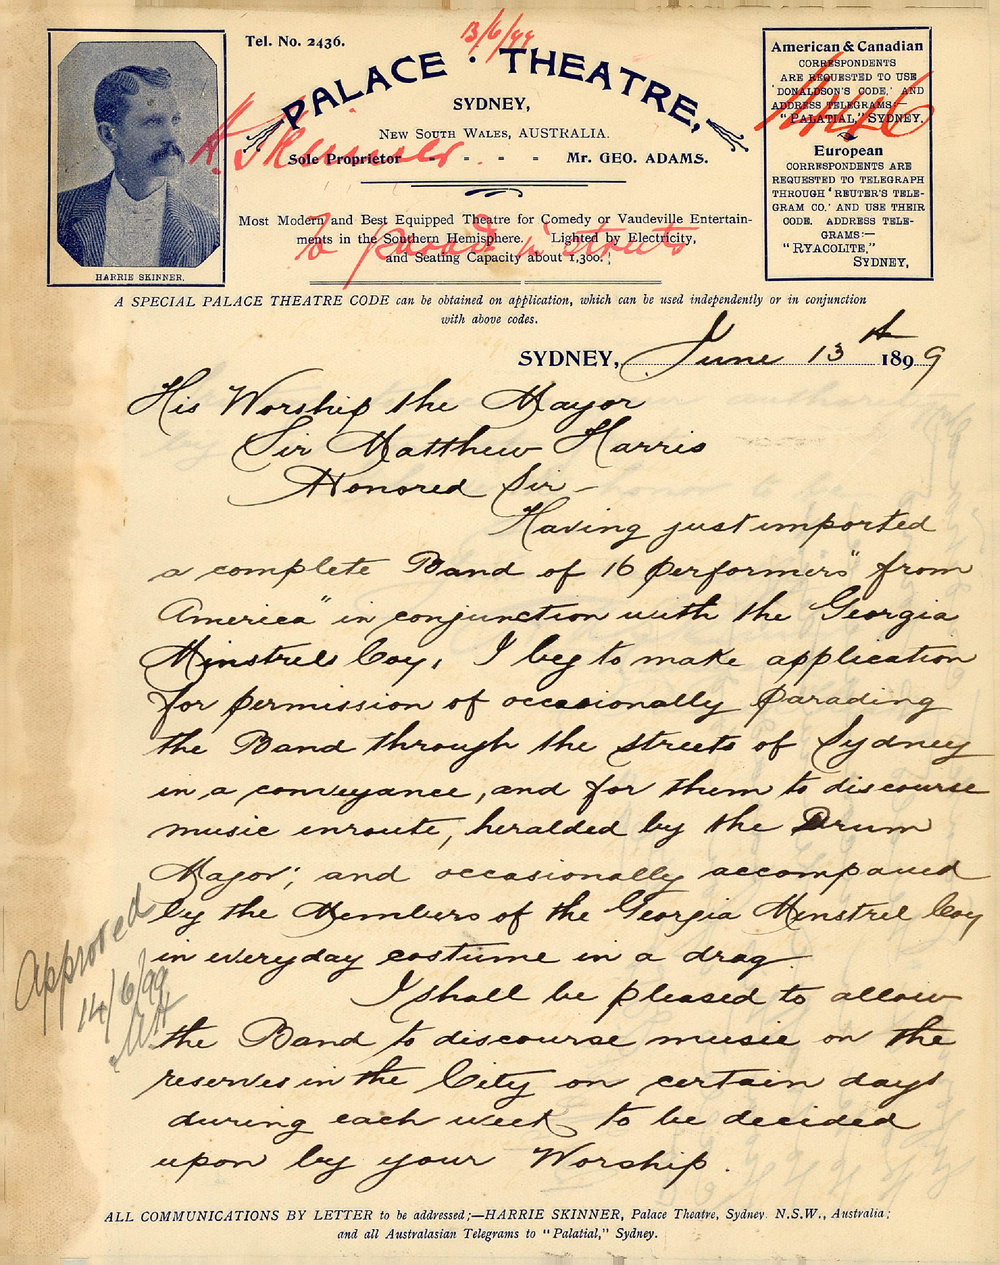 13/6/99
Tel. No. 2436.
PALACE · THEATRE,
SYDNEY,
NEW SOUTH WALES, AUSTRALIA.
Sole Proprietor - - - - - Mr. GEO. ADAMS.
H. Skinner
To parade in streets
Most Modern and Best Equipped Theatre for Comedy or Vaudeville Entertain-
ments in the Southern Hemisphere. Lighted by Electricity,
and Seating Capacity about 1,300.
HARRIE SKINNER.
American & Canadian
CORRESPONDENTS
ARE REQUESTED TO USE
'DONALDSON'S CODE,' AND
ADDRESS TELEGRAMS:—
"PALATIAL," SYDNEY.
European
CORRESPONDENTS ARE
REQUESTED TO TELEGRAPH
THROUGH 'REUTER'S TELE-
GRAM CO.' AND USE THEIR
CODE. ADDRESS TELE-
GRAMS:—
"RYACOLITE,"
SYDNEY,
A SPECIAL PALACE THEATRE CODE can be obtained on application, which can be used independently or in conjunction
with above codes.
SYDNEY, June 13th 1899
His Worship the Mayor
Sir Matthew Harris
Honored Sir –
Having just imported
a complete Band of 16 performers "from
America" in conjunction with the Georgia
Minstrels Coy, I beg to make application
for permission of occasionally parading
the Band through the streets of Sydney
in a conveyance, and for them to discourse
music enroute, heralded by the Drum
Major; and occasionally accompanied
by the Members of the Georgia Minstrel Coy
in everyday costume in a drag.
I shall be pleased to allow
the Band to discourse music on the
reserves in the City on certain days
during each week to be decided
upon by your Worship.
Approved
14/6/99
MH
ALL COMMUNICATIONS BY LETTER to be addressed;—HARRIE SKINNER, Palace Theatre, Sydney. N.S.W., Australia;
and all Australasian Telegrams to "Palatial," Sydney.